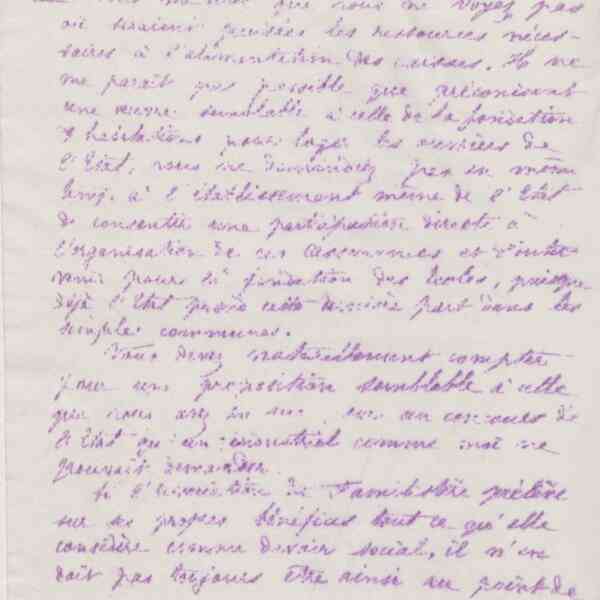 que vous ne voyez pas
où seraient puisées les ressources néces-
saires à l'alimentation des caisses. Il ne
me paraît pas possible que préconisant
une œuvre semblable à celle de la fondation
d'habitations pour loger les ouvriers de
l'Etat, vous ne demandiez pas en même
temps à l'établissement même de l'Etat
de consentir une participation directe à
l'organisation de ces assurances et d'inter-
venir pour la fondation des écoles, puisque
déjà l'Etat prend cette dernière part dans les
simples communes.
Vous devez naturellement compter
pour une proposition semblable à celle
que vous avez en vue, sur un concours de
l'Etat qu'un industriel comme moi ne
pouvait demander.
Si l'association du Familistère prélève
sur ses propres bénéfices tout ce qu'elle
considère comme devoir social, il n'en
doit pas toujours être ainsi au point de